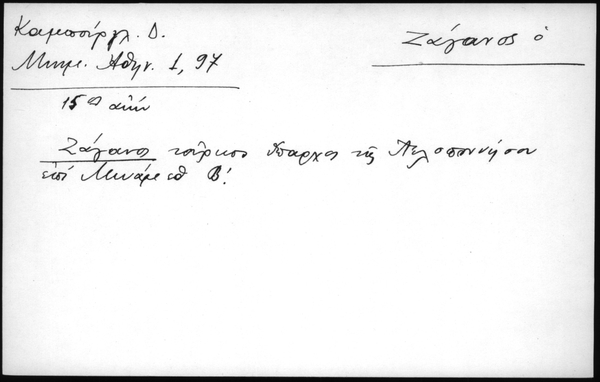 Καμπούργλ. Δ.
Μνημ. Αθην. 1, 97
Ζάγανος ὁ
15ος αἰών
Ζάγανος τοῦρκος ὕπαρχος τῆς Πελοποννήσου
ἐπί Μωάμεθ Β'.